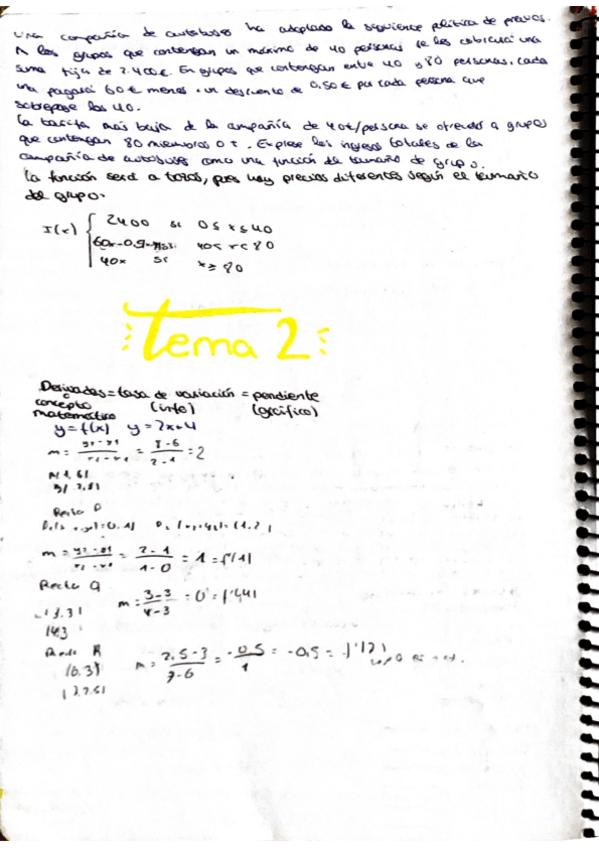 Una compañía de autobuses ha adoptado la siguiente política de precios.
A los grupos que contengan un máximo de 40 personas se les cobrará una
suma fija de 2.400€. En grupos que contengan entre 40 y 80 personas, cada
una pagará 60€ menos un descuento de 0,50€ por cada persona que
sobrepase las 40.
La tarifa más baja de la compañía de 40€/persona se ofrecerá a grupos
que contengan 80 miembros o +. Exprese los ingresos totales de la
compañía de autobuses como una función del tamaño de grupo.
La función será a trozos, pues hay precios diferentes según el tamaño
del grupo.
I(x) { 2400 si 0≤x≤40
40<x<80
40x si x≥80
Tema 2
Derivadas = tasa de variación = pendiente
concepto matemático (info) (gráfico)
y=f(x) y=2x+4
m = y2-y1 / x2-x1 = 8-6 / 2-1 = 2
m = y2-y1 / x2-x1 = 2-1 / 1-0 = 1 = f'(1)
Recta Q
m = 3-3 / 4-3 = 0 = f'(4)
Recta R
(6.3)
m = 2.5-3 / 7-6 = -0.5 / 1 = -0,5